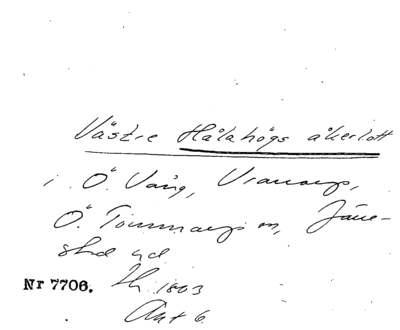 Västre Hålahögs åkerlott
i Ö. Vång, Vranarps,
Ö. Tommarps sn, Järre-
stad hd.
Nr 7706. Lh 1803
Akt 6